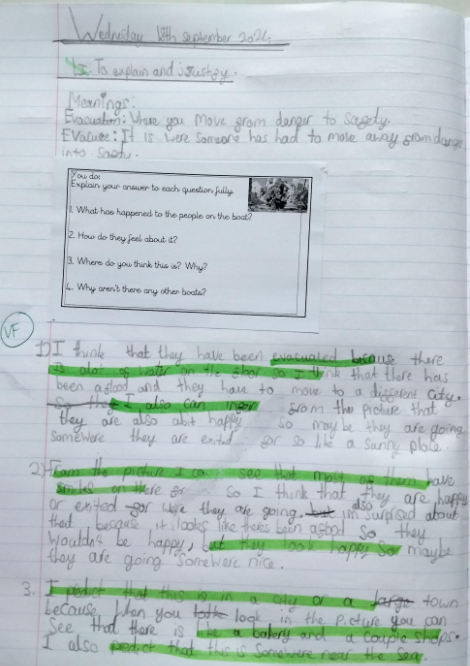 Wednesday 18th september 2024
To explain and justify.
Meanings:
Evacuation: Where you move from danger to safety
Evacuee: It is were someone has had to move away from danger
into safty.
You do:
Explain your answer to each question fully.
1. What has happened to the people on the boat?
2. How do they feel about it?
3. Where do you think this is? Why?
4. Why aren't there any other boats?
VF
1) I think that they have been evacuated because there
is alot of water on the floor so I think that there has
been a flood and they have to move to a different city.
I also can from the picture that
they are also abit happy so maybe they are going
somewere they are exited for so like a sunny place.
2) From the picture I can see that most of them have
smiles on there so I think that they are happy
or exited for were they are going. also im surprised about
that because it looks like theres been a flood so they
wouldnt be happy, but they look happy so maybe
they are going somewere nice.
3. I pedict that this is in a city or a large town
because when you look in the picture you can
see that there is a bakery and a couple shops.
I also pedict that this is somewere near the sea.